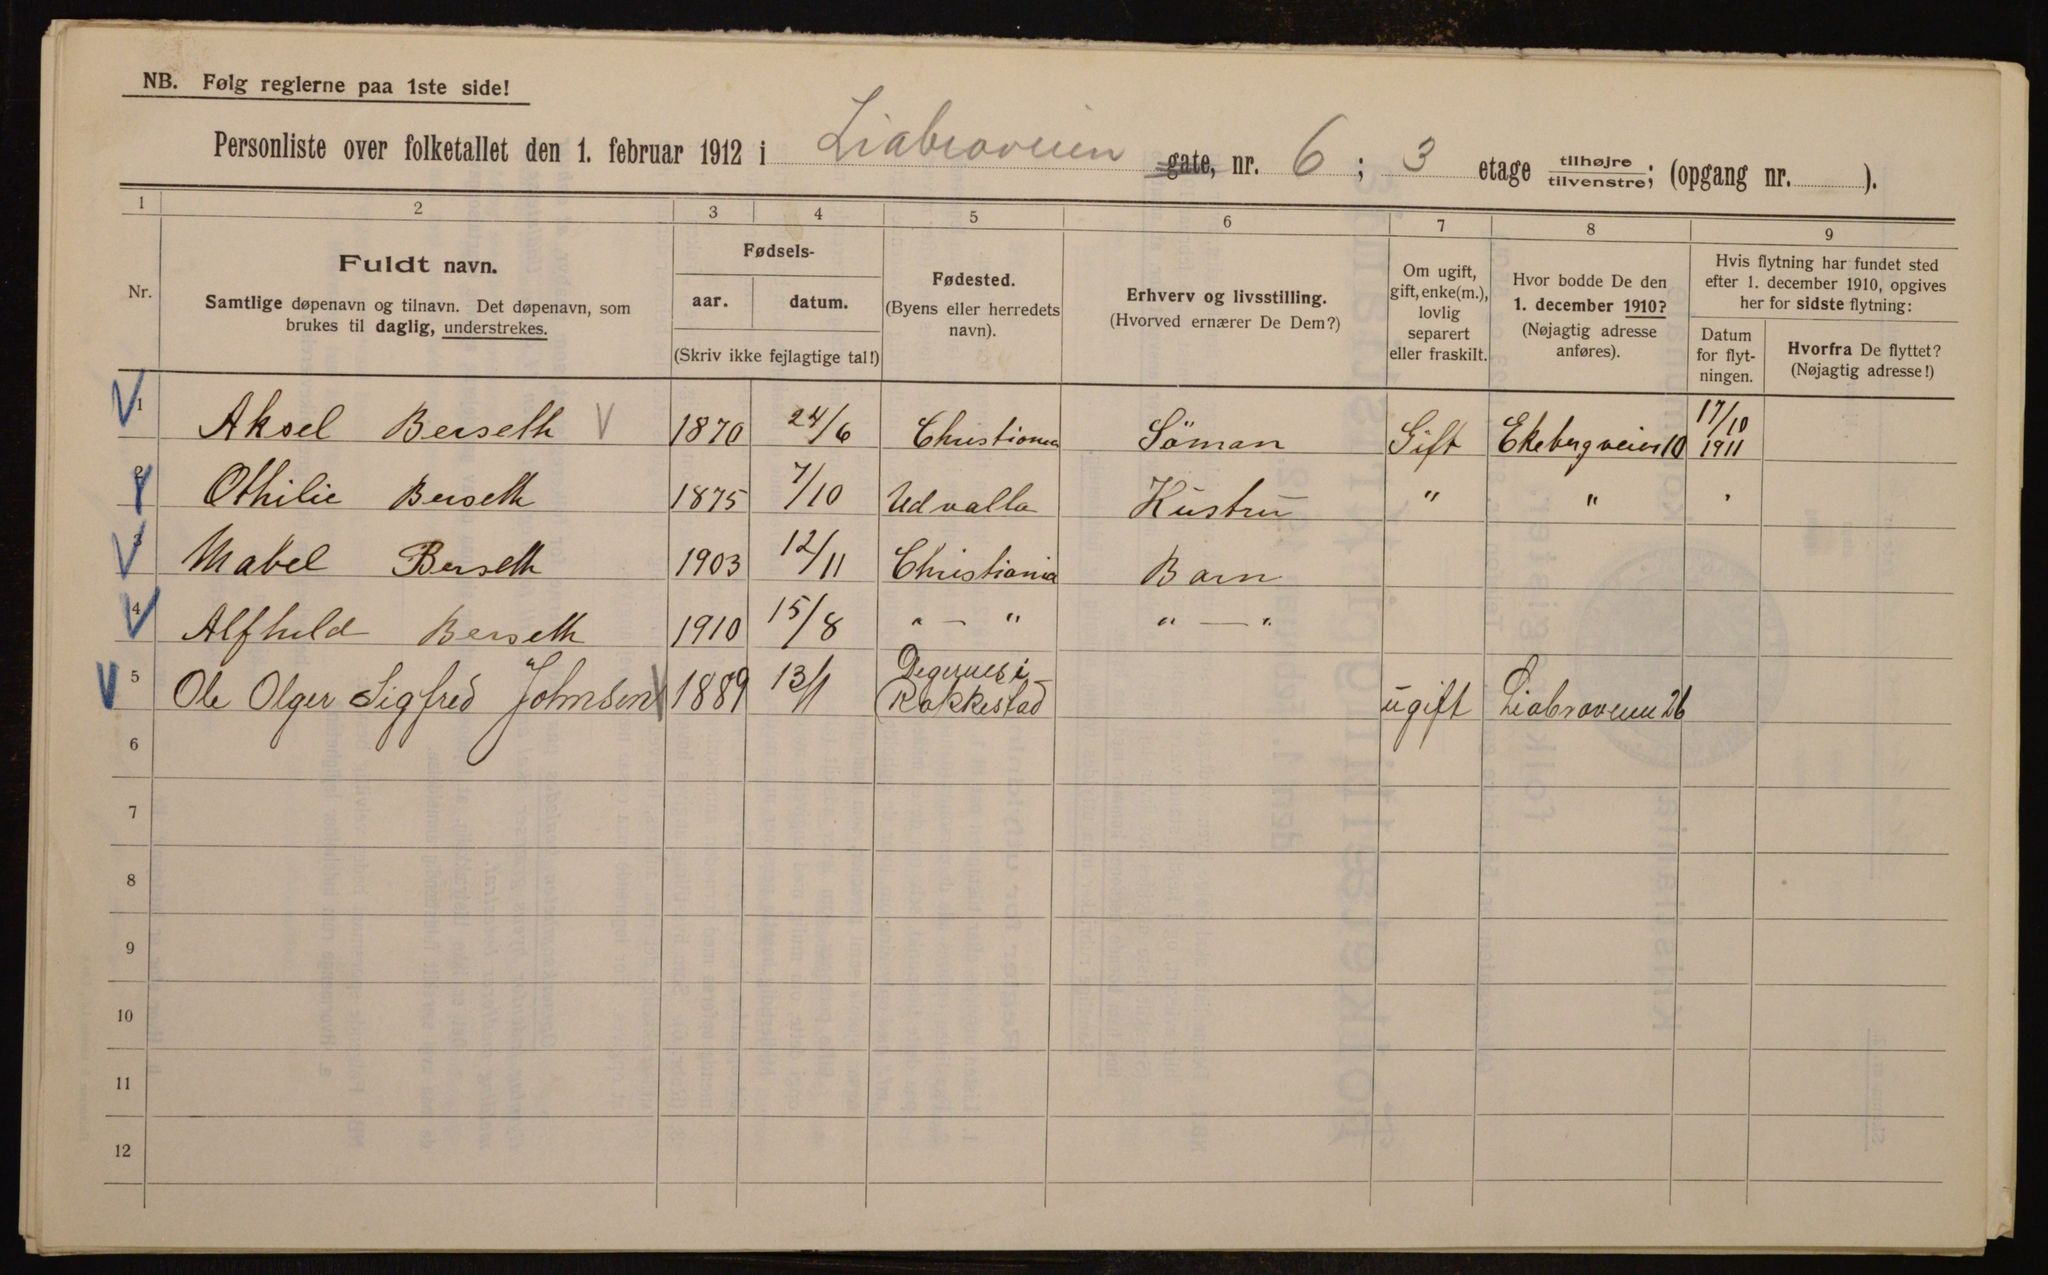 NB. Følg reglerne paa 1ste side!
Personliste over folketallet den 1. februar 1912 i Liabroveien gate, nr. 6 ; 3 etage tilhøjre/tilvenstre; (opgang nr. ).
1 2 3 4 5 6 7 8 9
Nr.
Fuldt navn.
Samtlige døpenavn og tilnavn. Det døpenavn, som
brukes til daglig, understrekes.
Fødsels-
aar. datum.
(Skriv ikke fejlagtige tal!)
Fødested.
(Byens eller herredets
navn).
Erhverv og livsstilling.
(Hvorved ernærer De Dem?)
Om ugift,
gift, enke(m.),
lovlig
separert
eller fraskilt.
Hvor bodde De den
1. december 1910?
(Nøjagtig adresse
anføres).
Hvis flytning har fundet sted
efter 1. december 1910, opgives
her for sidste flytning:
Datum
for flyt-
ningen.
Hvorfra De flyttet?
(Nøjagtig adresse!)
1 Aksel Berseth 1870 24/6 Christiania Söman Gift Ekebergveien 10 17/10 1911
2 Othilie Berseth 1875 7/10 Udvalla Hustru " " "
3 Mabel Berseth 1903 12/11 Christiania Barn
4 Alfhild Berseth 1910 15/8 " — " " — "
5 Ole Olger Sigfred Johnsen 1889 13/1 Degernes i
Rakkestad ugift Liabroveien 26
6
7
8
9
10
11
12